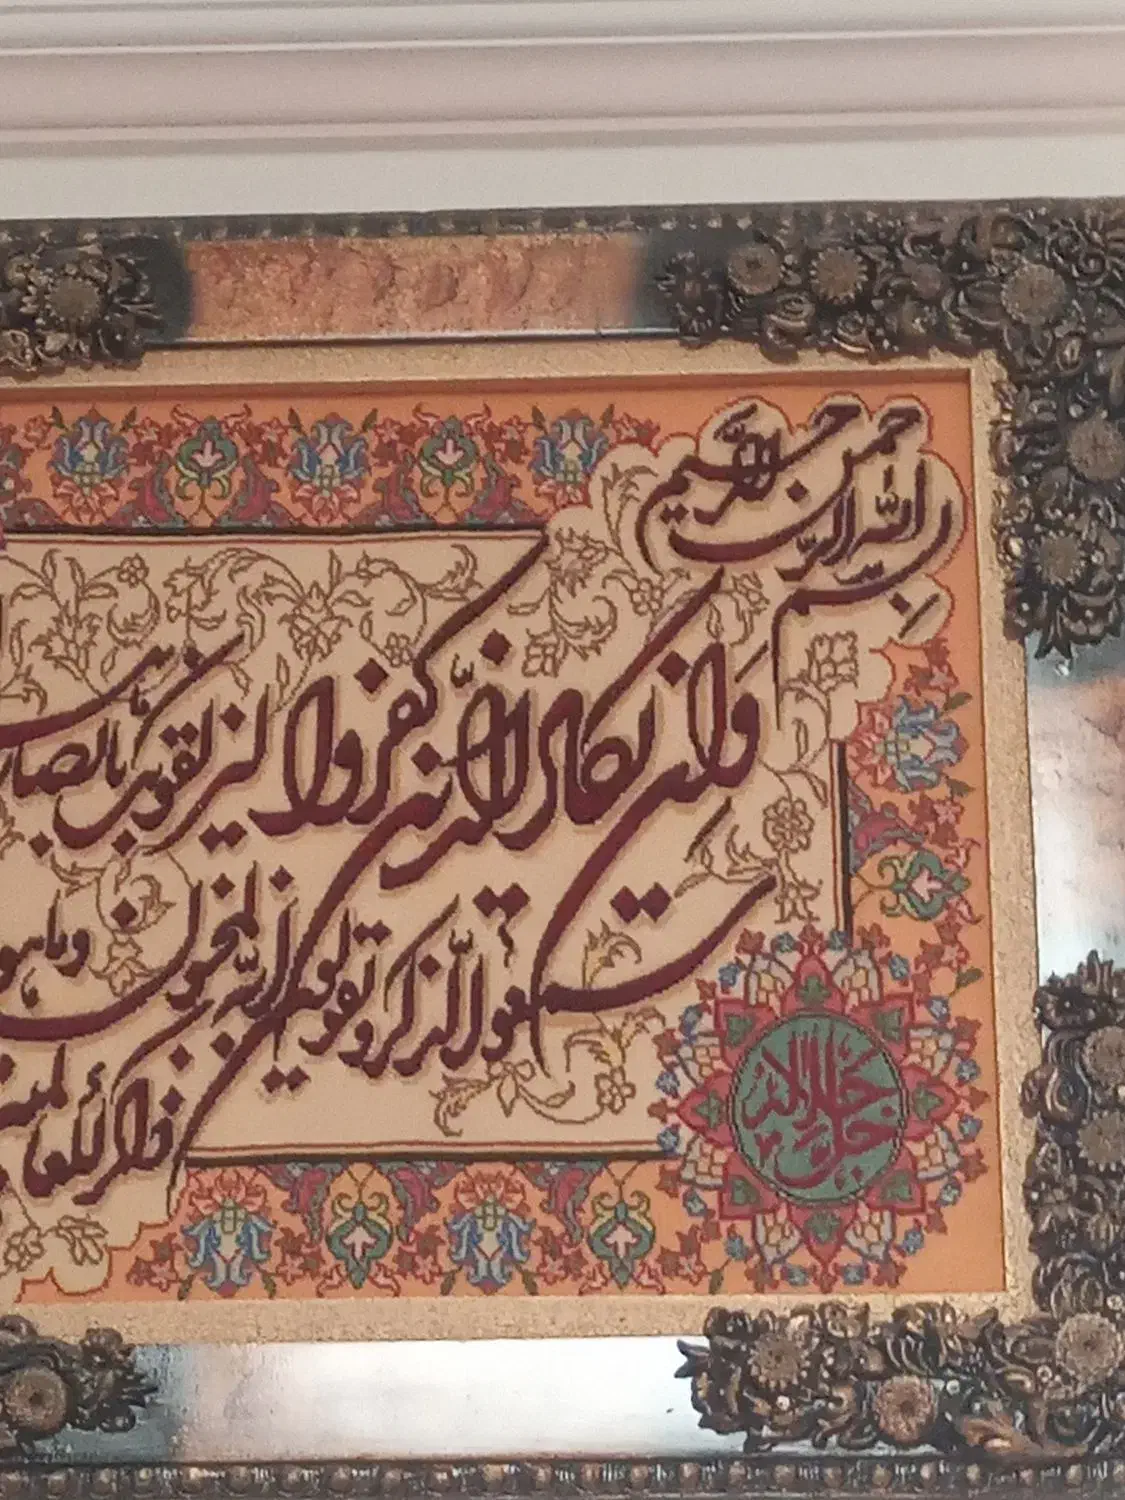 بسم الله الرحمن الرحیم
وَاِن یکاد الَّذین کفروا لیزلقونک بابصار
لمّا سمعوا الذکر و یقولون اِنّه لمجنون وما هو
ذکر للعالمین
جل جلاله